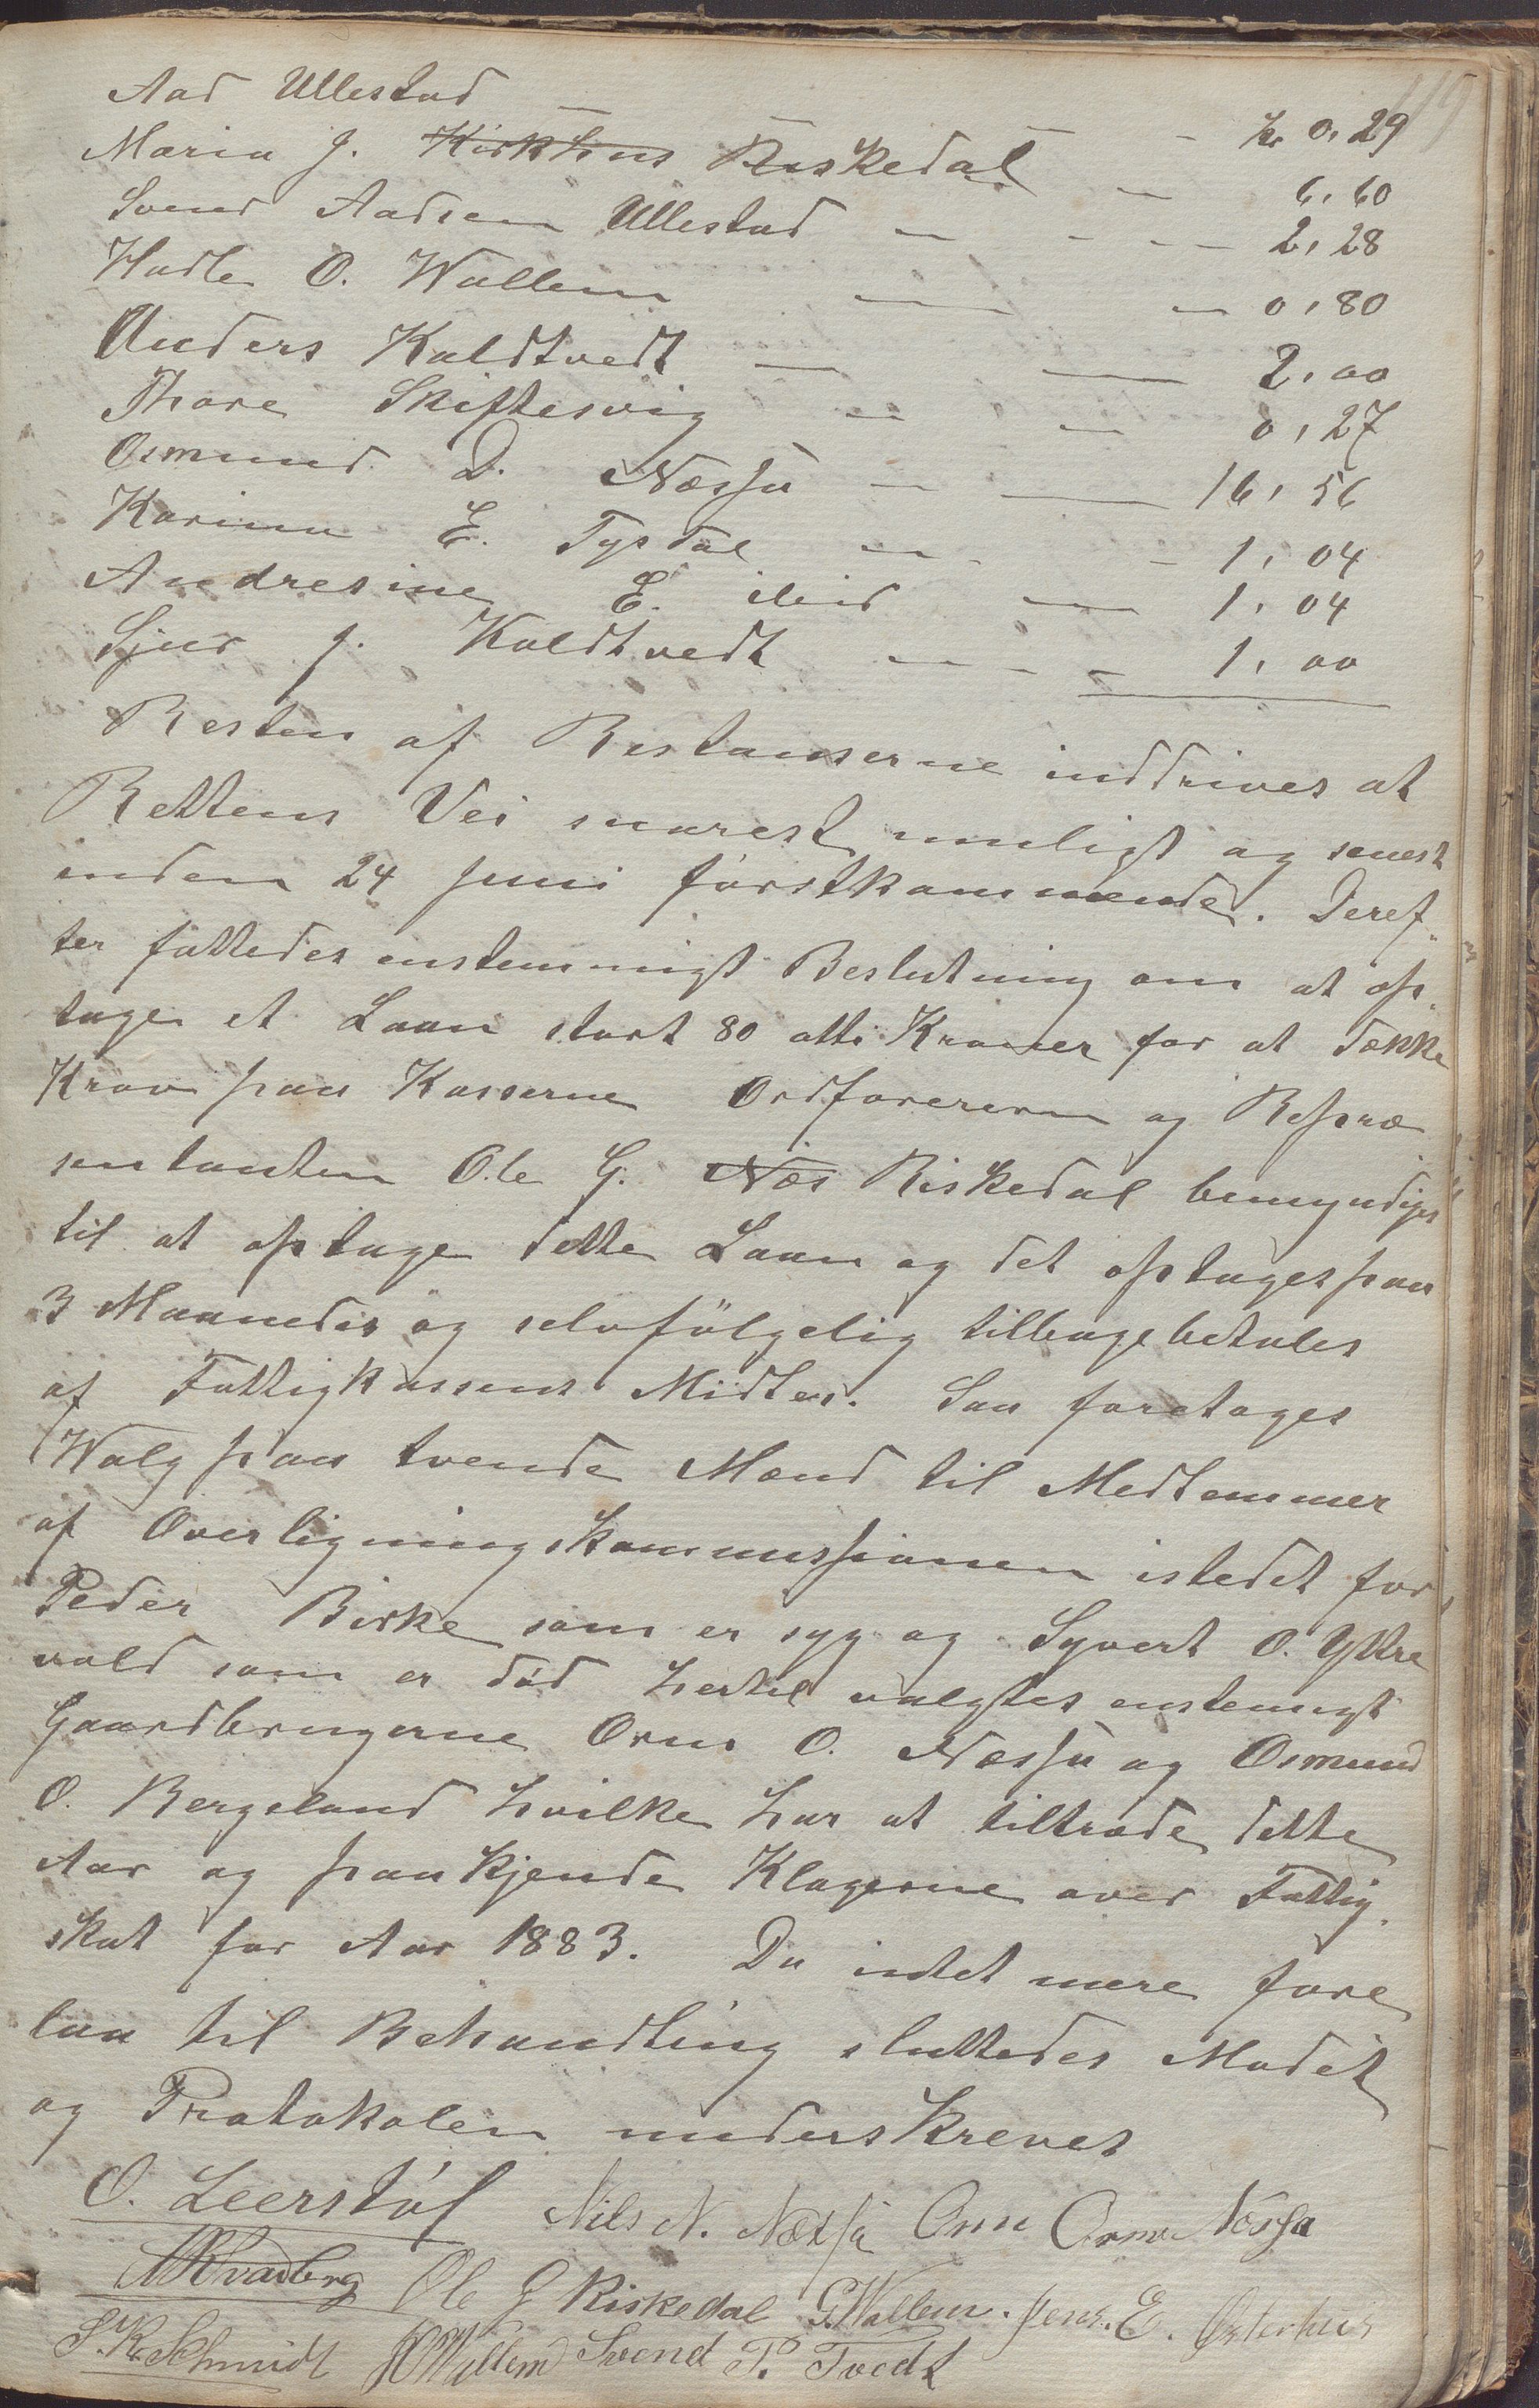 119
Aad Ullestad — — — Kr 0,29
Maria J. Kirkhus Riskedal — 6,60
Svend Aadsen Ullestad — - - — 2,28
Hadle O. Wallem — — 0,80
Anders Kaldtvedt — — 2,00
Thore Skiftesvig — — 0,27
Osmund D. Næssa — — 16,56
Karina E. Tysdal — - 1,04
Andresine E. ibid — 1,04
Sjur J. Kaldtvedt — - - 1,00
Resten af Restanserne inddrives at
Rettens Vei snarest muligt og senest
inden 24 Juni førstkommende. Deref-
ter fattedes enstemmigt Beslutning om at op-
tage et Laan stort 80 otti Kroner for at dække
Krav paa Kasserne Ordføreren og Repræ
sentanten Ole G. Næs Riskedal bemyndiges
til at optage dette Laan og det optages paa
3 Maaneder og selvfølgelig tilbagebetales
af Fattigkassens Midler. Saa foretages
Walg paa tvende Mænd til Medlemmer
af Overligningskommissionen istedet for
Peder Birke som er syg og Syvert O. Ytre
vold som er død hertil valgtes enstemigt
Gaardbrugerne Orm O. Næssa og Osmund
O. Bergeland hvilke har at tiltræde dette
Aar og paakjende Klagerne over Fattig-
skat for Aar 1883. Da intet mere fore
laa til Behandling sluttedes Mødet
og Protokolen underskreves
O. Leerstøl Nils N. Næssa Orm Orms Næssa
Ole G Riskedal G. Wallem. Jens. E. Østerhus
S. K. Schmidt Svend P. Tvedt